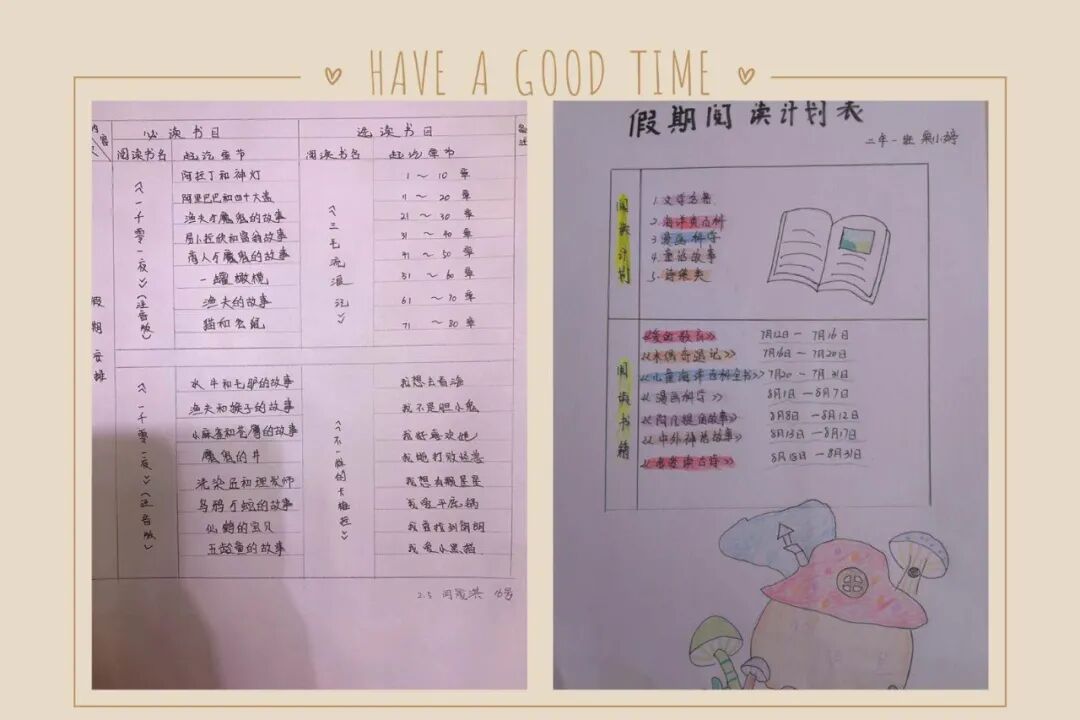 HAVE A GOOD TIME
必读书目 选读书目
阅读书名 起讫章节 阅读书名 起讫章节
假期安排
《一千零一夜》(注音版)
阿拉丁和神灯
阿里巴巴和四十大盗
渔夫和魔鬼的故事
商人和魔鬼的故事
一罐橄榄
渔夫的故事
猫和老鼠
《三毛流浪记》
1～10章
11～20章
21～30章
31～40章
41～50章
51～60章
61～70章
71～80章
《一千零一夜》(注音版)
水牛和毛驴的故事
渔夫和猴子的故事
小麻雀和苍鹰的故事
魔鬼的井
洗染匠和理发师
乌鸦和蛇的故事
仙鹤的宝贝
的故事
《不一样的卡梅拉》
我想去看海
我不是胆小鬼
我好喜欢她
我能打败怪兽
我想有颗星星
我爱平底锅
我要找到朗朗
我爱小黑猫
2.3
假期阅读计划表
二年一班
阅读计划
1.文学名著
2.海洋百科
3.漫画科学
4.童话故事
5.诗集类
阅读书籍
《爱的教育》 7月12日－7月16日
《木偶奇遇记》 7月16日－7月20日
《儿童海洋百科全书》 7月20－7月31日
《漫画科学》 8月1日－8月7日
《阿凡提的故事》 8月8日－8月12日
《中外神话故事》 8月13日－8月17日
读古诗》 8月18日－8月31日